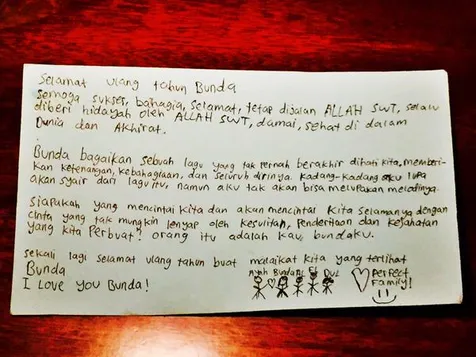 Selamat ulang tahun Bunda
Semoga sukses, bahagia, selamat, tetap dijalan ALLAH SWT, selalu
diberi hidayah oleh ALLAH SWT, damai, sehat di dalam
Dunia dan Akhirat.
Bunda bagaikan sebuah lagu yang tak pernah berakhir dihati kita, memberi-
kan ketenangan, kebahagiaan, dan seluruh dirinya. Kadang-kadang aku lupa
akan syair dari lagu itu, namun aku tak akan bisa melupakan melodinya.
Siapakah yang mencintai kita dan akan mencintai kita selamanya dengan
cinta yang tak mungkin lenyap oleh kesulitan, penderitaan dan kejahatan
yang kita perbuat? orang itu adalah kau, bundaku.
Sekali lagi selamat ulang tahun buat malaikat kita yang terlihat
Bunda
I Love You Bunda!
Ayah Bunda
Perfect
Family!